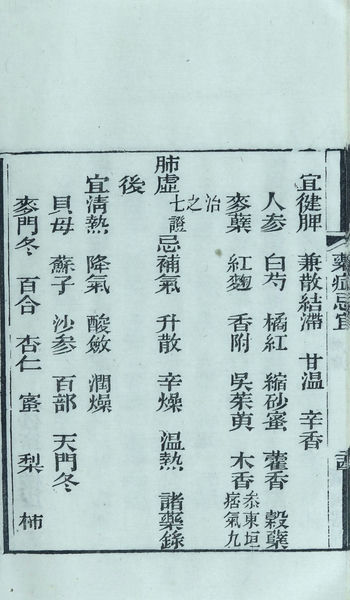 藥症忌宜
宜健脾 兼散結滯 甘溫 辛香
人參 白芍 橘紅 縮砂蜜 藿香 穀蘖
麥蘖 紅麴 香附 吳茱萸 木香 叅東垣痞氣丸
肺虛 七證治之 忌補氣 升散 辛燥 溫熱 諸藥錄
後
宜清熱 降氣 酸斂 潤燥
貝母 蘇子 沙參 百部 天門冬
麥門冬 百合 杏仁 蜜 梨 柿